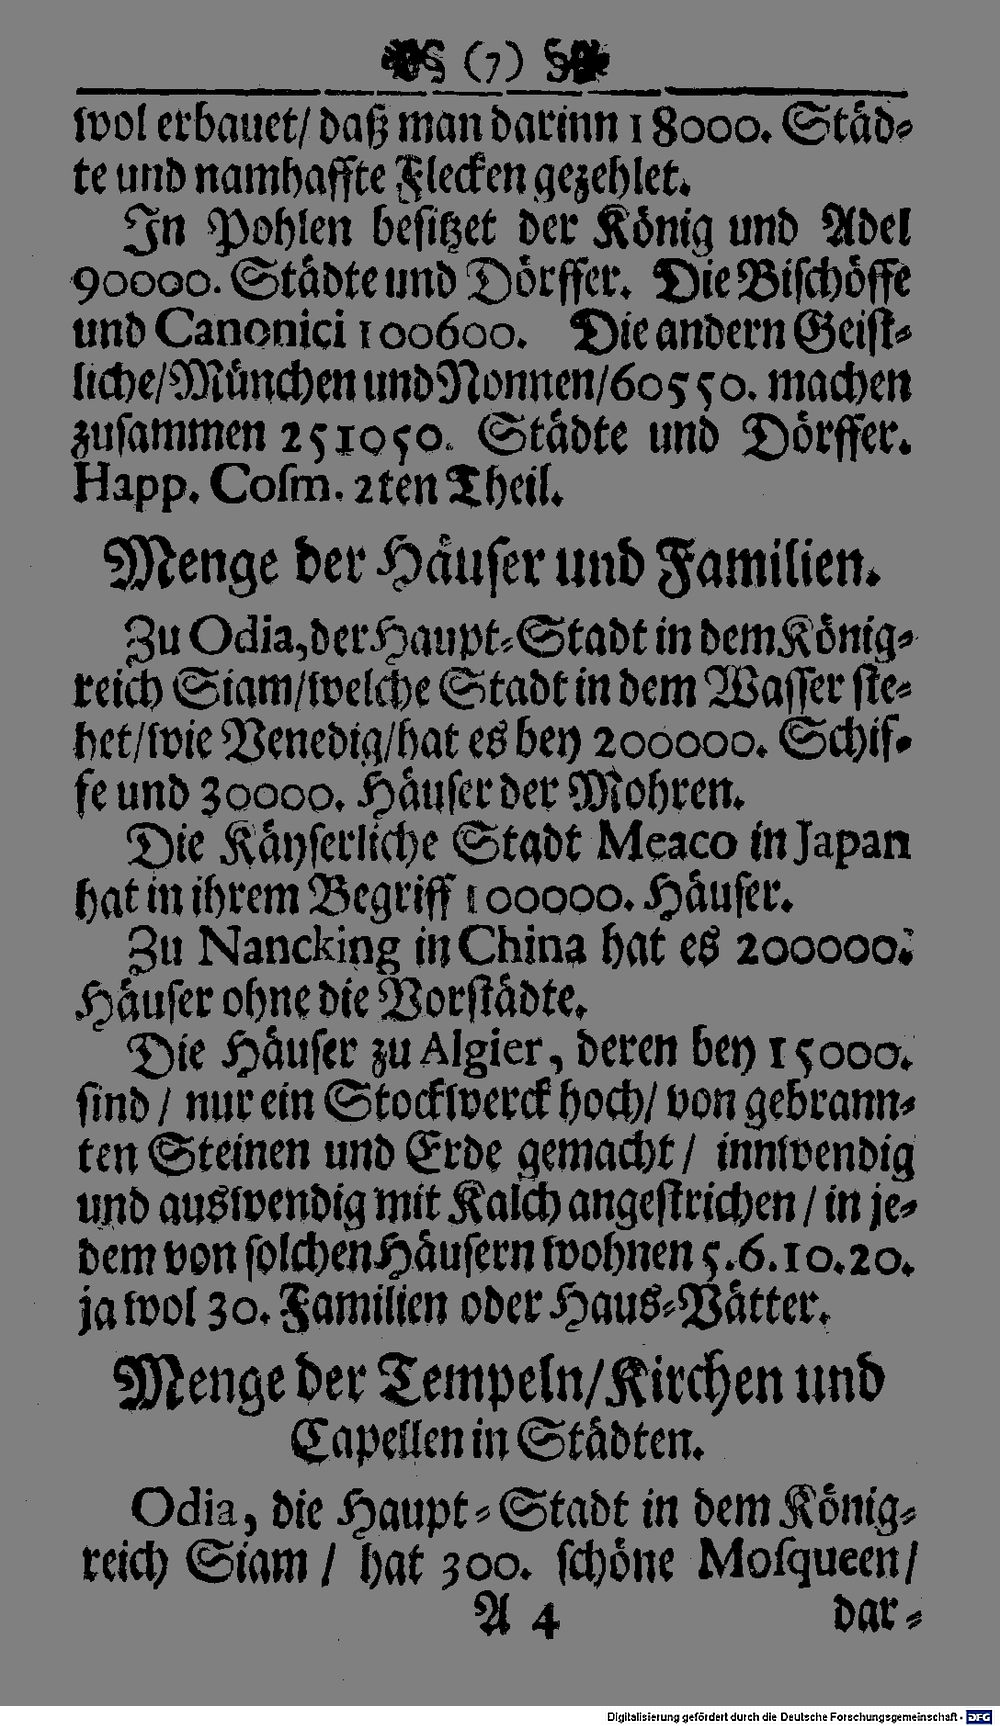 (7)
wol erbauet/ daß man darinn 18000. Städ-
te und namhaffte Flecken gezehlet.
In Pohlen besitzet der König und Adel
90000. Städte und Dörffer. Die Bischöffe
und Canonici 100600. Die andern Geist-
liche/ München und Nonnen/ 60550. machen
zusammen 251050. Städte und Dörffer.
Happ. Cosm. 2ten Theil.
Menge der Häuser und Familien.
Zu Odia, der Haupt-Stadt in dem König-
reich Siam/ welche Stadt in dem Wasser ste-
het/ wie Venedig/ hat es bey 200000. Schif-
fe und 30000. Häuser der Mohren.
Die Käyserliche Stadt Meaco in Japan
hat in ihrem Begriff 100000. Häuser.
Zu Nancking in China hat es 200000.
Häuser ohne die Vorstädte.
Die Häuser zu Algier, deren bey 15000.
sind / nur ein Stockwerck hoch/ von gebrann-
ten Steinen und Erde gemacht / innwendig
und auswendig mit Kalch angestrichen / in je-
dem von solchen Häusern wohnen 5. 6. 10. 20.
ja wol 30. Familien oder Haus-Vätter.
Menge der Tempeln/ Kirchen und
Capellen in Städten.
Odia, die Haupt-Stadt in dem König-
reich Siam / hat 300. schöne Mosqueen/
A 4 dar-
Digitalisierung gefördert durch die Deutsche Forschungsgemeinschaft - DFG